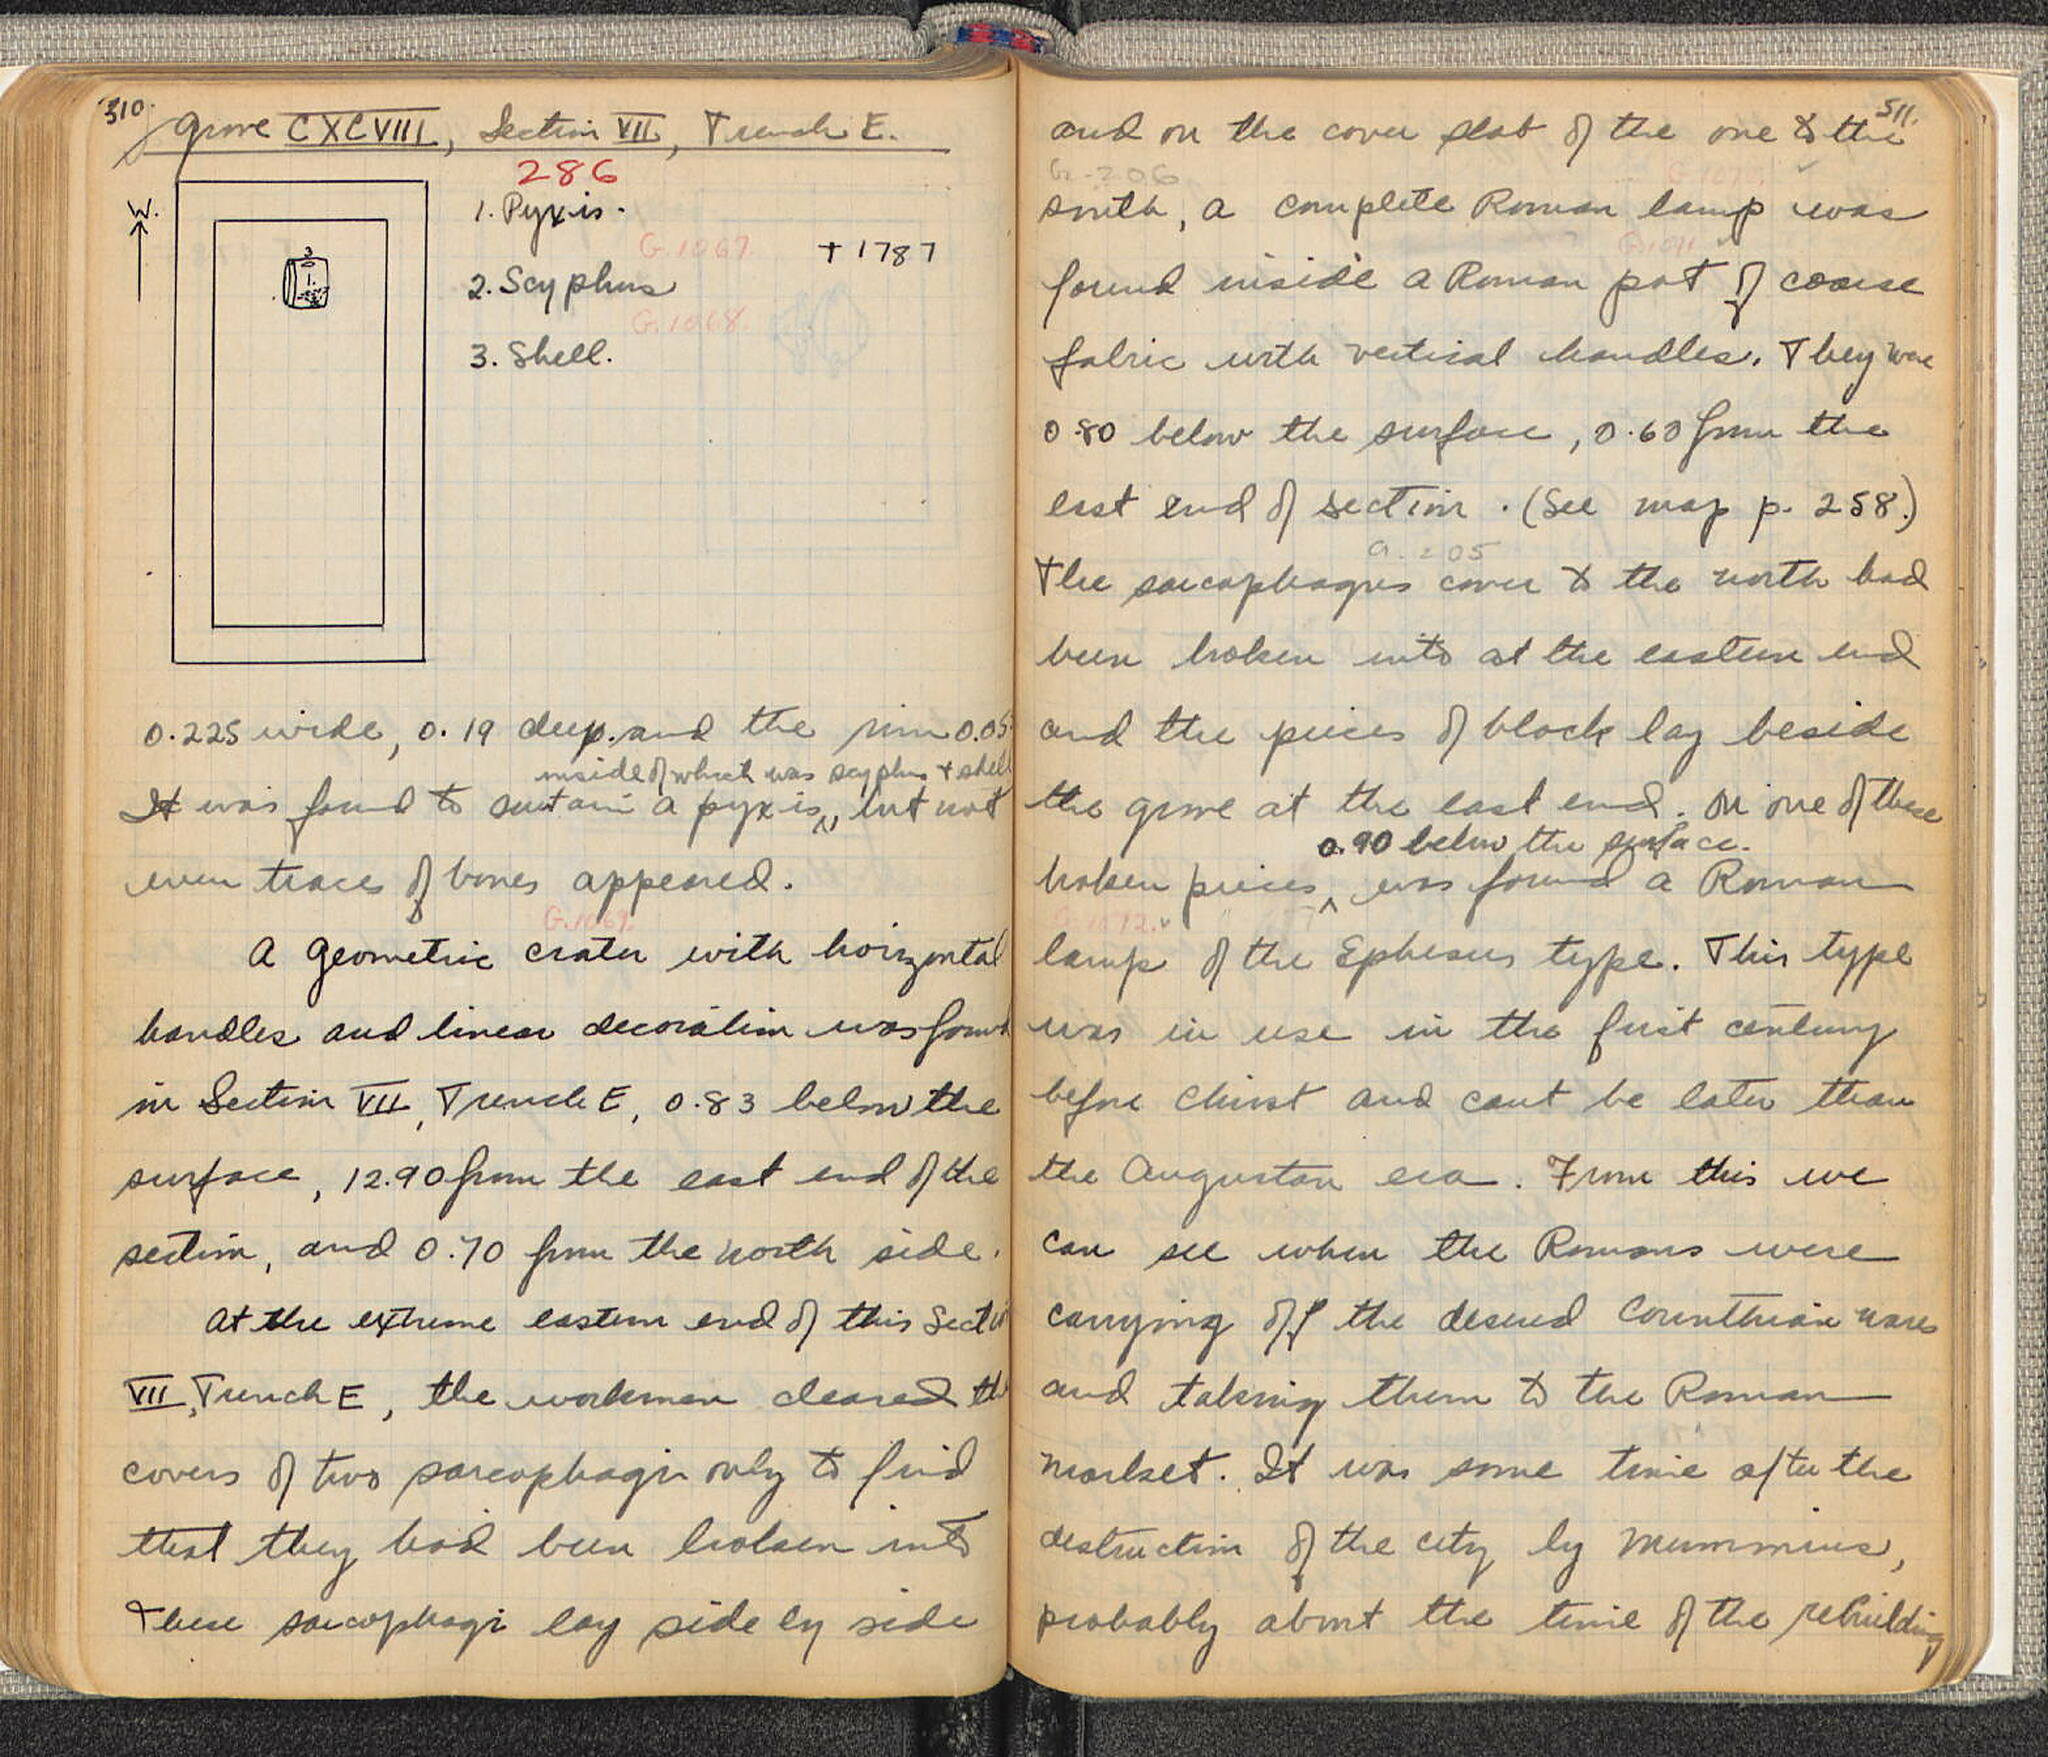 510.
Grave CXCVIII, Section VII, Trench E.
286
W.
1. Pyxis.
G.1067.
+ 1787
2. Scyphus
G.1068.
3. Shell.
3
1.
0.225 wide, 0.19 deep and the rim 0.05
inside of which was scyphus + shell
It was found to contain a pyxis, but not
even traces of bones appeared.
G.1069.
A Geometric crater with horizontal
handles and linear decoration was found
in Section VII, Trench E, 0.83 below the
surface, 12.90 from the east end of the
section, and 0.70 from the north side.
At the extreme eastern end of this Section
VII, Trench E, the workmen cleared the
covers of two sarcophagi only to find
that they had been broken into
These sarcophagi lay side by side
511.
and on the cover slab of the one to the
G.-206
south, a complete Roman lamp was
found inside a Roman pot of coarse
fabric with vertical handles. They were
0.80 below the surface, 0.60 from the
east end of section. (See map p. 258.)
G.205
The sarcophagus cover to the north had
been broken into at the eastern end
and the pieces of block lay beside
the grave at the east end. On one of these
0.90 below the surface.
broken pieces ^ was found a Roman
G.1072.
lamp of the Ephesus type. This type
was in use in the first century
before Christ and can't be later than
the Augustan era. From this we
can see when the Romans were
carrying off the desired Corinthian wares
and taking them to the Roman
market. It was some time after the
destruction of the city by Mummius,
probably about the time of the rebuilding